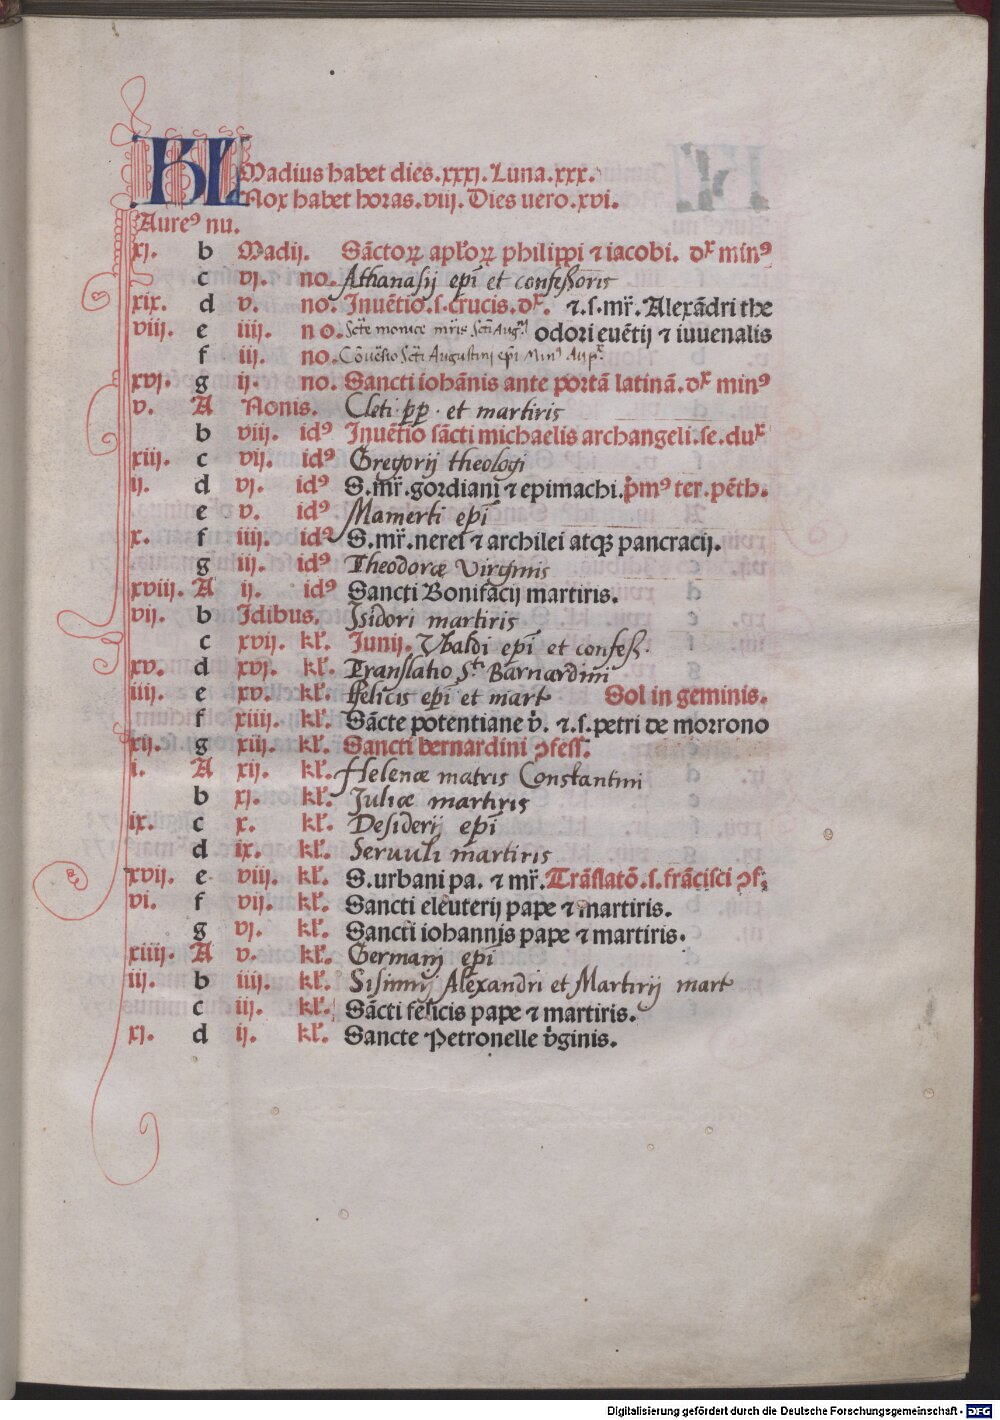 KL Madius habet dies.xxxj. Luna.xxx.
Nox habet horas.viij. Dies uero.xvi.
Aureꝰ nu.
xj. b Madij. Sāctoꝝ apl'oꝝ philippi ⁊ iacobi. dx minꝰ
c vj. no. Athanasij epī et confessoris
xix. d v. no. Inuētio.s.crucis.dx. ⁊.s.mr̄.Alexādri the
viij. e iiij. no. Scte monice mr̄is Scti Augni odori euētij ⁊ iuuenalis
f iij. no. Cōuersio Scti Augustinj epī Minꝰ dupx
xvj. g ij. no. Sancti iohānis ante portā latinā.dx minꝰ
v. A Nonis. Cleti.pp. et martiris
b viij. idꝰ Inuētio sācti michaelis archangeli.se.dux
xiij. c vij. idꝰ Gregorij theologi
ij. d vj. idꝰ S.mr̄.gordiani ⁊ epimachi.pmꝰ ter.pēth.
e v. idꝰ Mamerti epī
x. f iiij. idꝰ S.mr̄.nerei ⁊ archilei atqꝫ pancracij.
g iij. idꝰ Theodoræ Virginis
xviij. A ij. idꝰ Sancti Bonifacij martiris.
vij. b Idibus. Isidori martiris
c xvij. kl'. Junij. Vbaldi epī et confess.
xv. d xvj. kl'. Translatio Sti Barnardini
iiij. e xv. kl'. Felicis epī et mart Sol in geminis.
f xiiij. kl'. Sācte potentiane v̄. ⁊.s.petri de morrono
xij. g xiij. kl'. Sancti bernardini ꝯfess'.
i. A xij. kl'. Helenæ matris Constantini
b xj. kl'. Juliæ martiris
ix. c x. kl'. Desiderij epī
d ix. kl'. Seruuli martiris
xvij. e viij. kl'. S.urbani pa. ⁊ mr̄.Trāslatō.s.frācisci ꝯf.
vi. f vij. kl'. Sancti eleuterij pape ⁊ martiris.
g vj. kl'. Sancti iohannis pape ⁊ martiris.
xiiij. A v. kl'. Germani epī
iij. b iiij. kl'. Sisinnij Alexandri et Martirij mart
c iij. kl'. Sācti felicis pape ⁊ martiris.
xj. d ij. kl'. Sancte Petronelle v̄ginis.
Digitalisierung gefördert durch die Deutsche Forschungsgemeinschaft - DFG